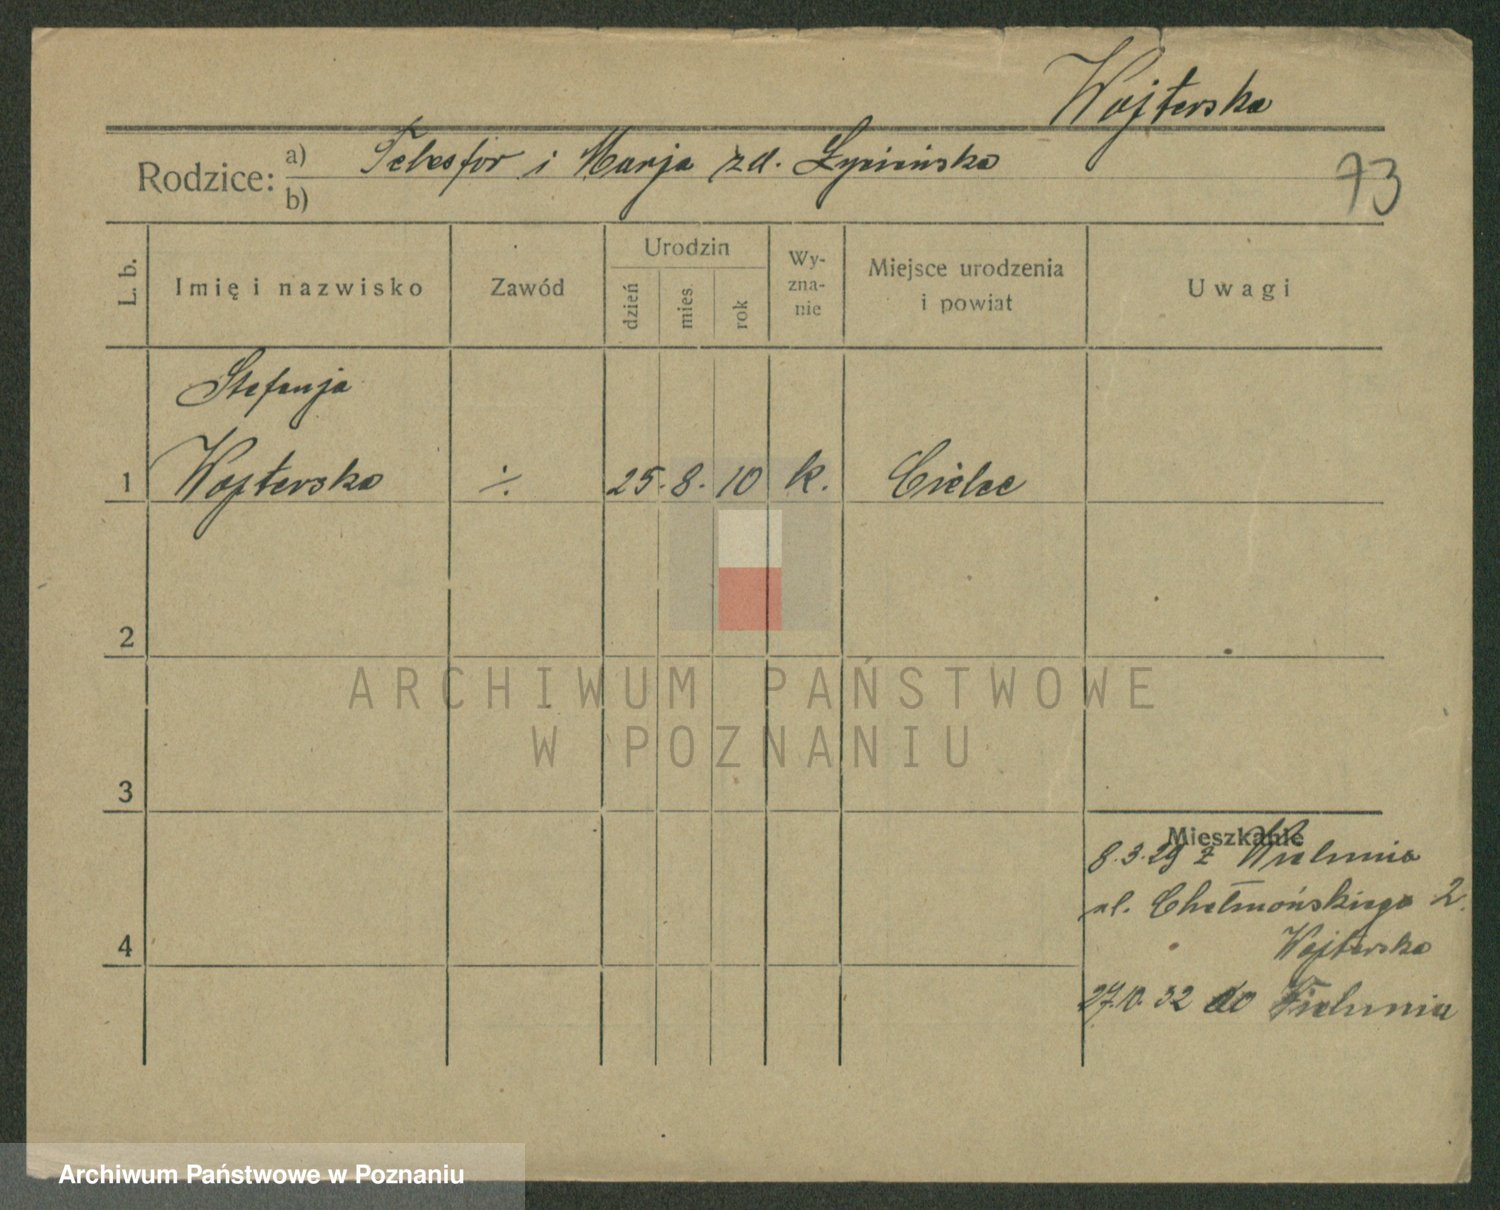 Wojterska
Rodzice: a) Telesfor i Marja zd. Łyczińska
b)
73
L. b. Imię i nazwisko Zawód Urodzin dzień mies. rok Wy-zna-nie Miejsce urodzenia i powiat Uwagi
Stefanja
1 Wojterska ./. 25. 8. 10 k. Cielce
2
3
4
Mieszkanie
8.3.29 z Wielunia
ul. Chełmońskiego 2.
Wojterska
27.10.32 do Wielunia
ARCHIWUM PAŃSTWOWE
W POZNANIU
Archiwum Państwowe w Poznaniu